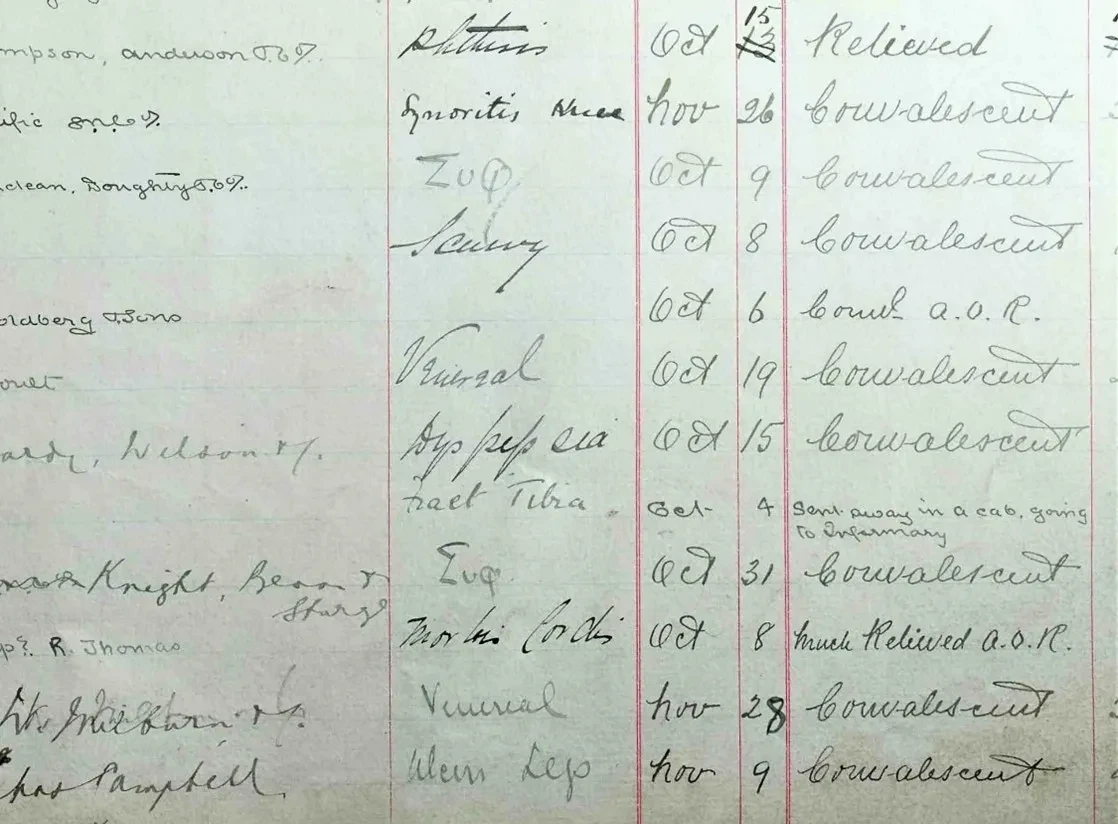 15
mpson, anderson & Co/. Phthisis Oct 13 Relieved
ific S.N. Co/. Synovitis Knee Nov 26 Convalescent
clean, Doughty & Co/. Συφ Oct 9 Convalescent
Scurvy Oct 8 Convalescent
oldberg & Sons Oct 6 Convt a.O.R.
Venereal Oct 19 Convalescent
ardy, Wilson & /. Dyspepsia Oct 15 Convalescent
Fract Tibia. Oct 4 Sent away in a cab, going
to Infirmary
Knight, Bevan & Συφ Oct 31 Convalescent
Sturge
R. Thomas Morbus Cordis Oct 8 Much Relieved a.O.R.
Milburn & Venereal Nov 28 Convalescent
has Campbell. Ulcers Leg Nov 9 Convalescent